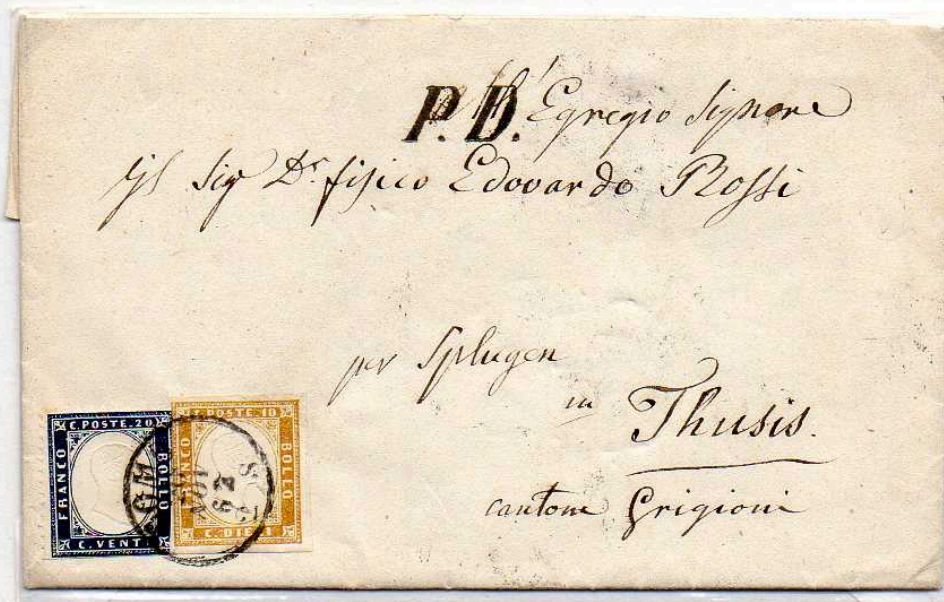 P.D.
All' Egregio Signore
Il Sig Dr. fisico Edovardo Rossi
per Splugen
in Thusis.
cantone Grigioni
C. POSTE. 20
FRANCO
BOLLO
C. VENTI
C. POSTE. 10
FRANCO
BOLLO
C. DIECI
NOV
62